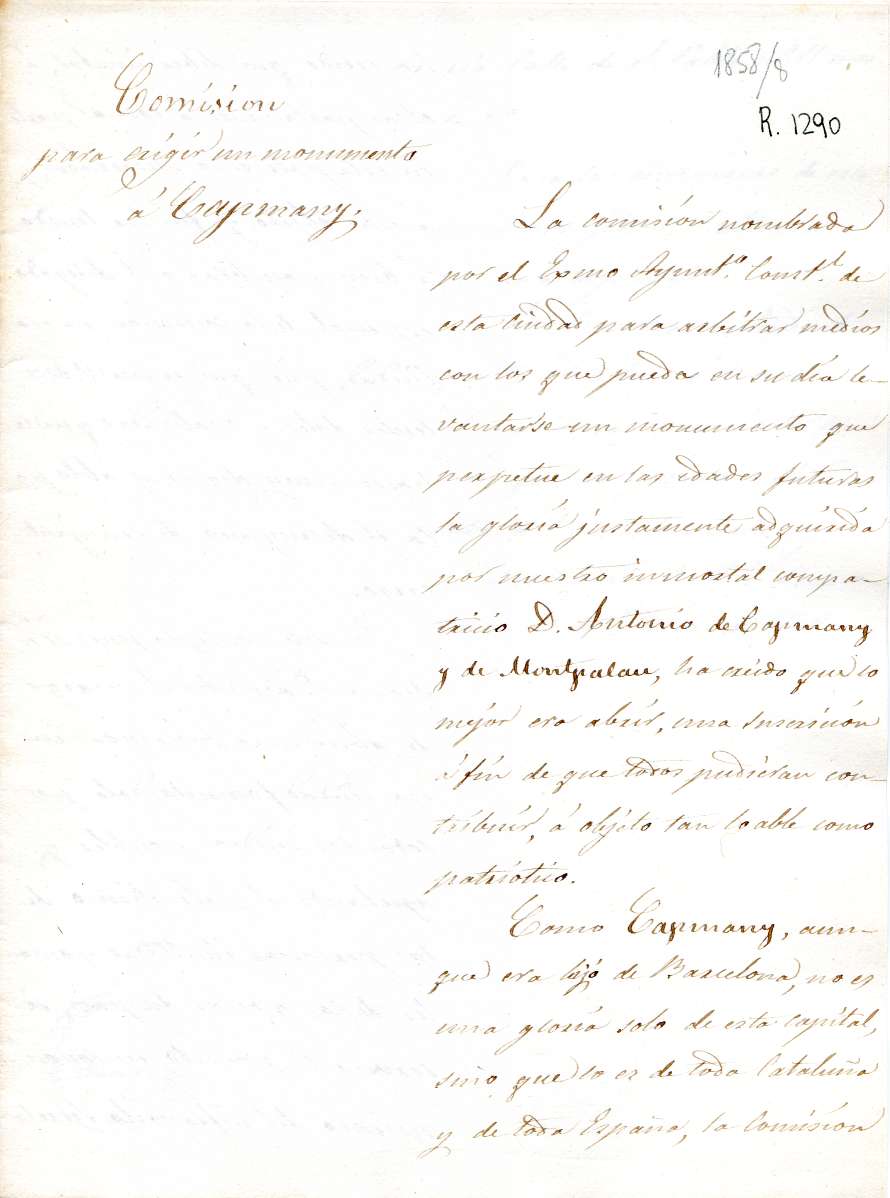 1858/8
R. 1290
Comision
para erigir un monumento
á Capmany.
La comision nombrada
por el Exmo Ayunt.º Const.l de
esta Ciudad para arbitrar medios
con los que pueda en su dia le-
vantarse un monumento que
perpetue en las edades futuras
la gloria justamente adquirida
por nuestro inmortal compa-
tricio D. Antonio de Capmany
y de Montpalau, ha creido que lo
mejor era abrir, una suscricion
á fin de que todos pudieran con-
tribuir, á objeto tan loable como
patriotico.
Como Capmany, aun-
que era hijo de Barcelona, no es
una gloria solo de esta capital,
sino que lo es de toda Cataluña
y de toda España, la Comision